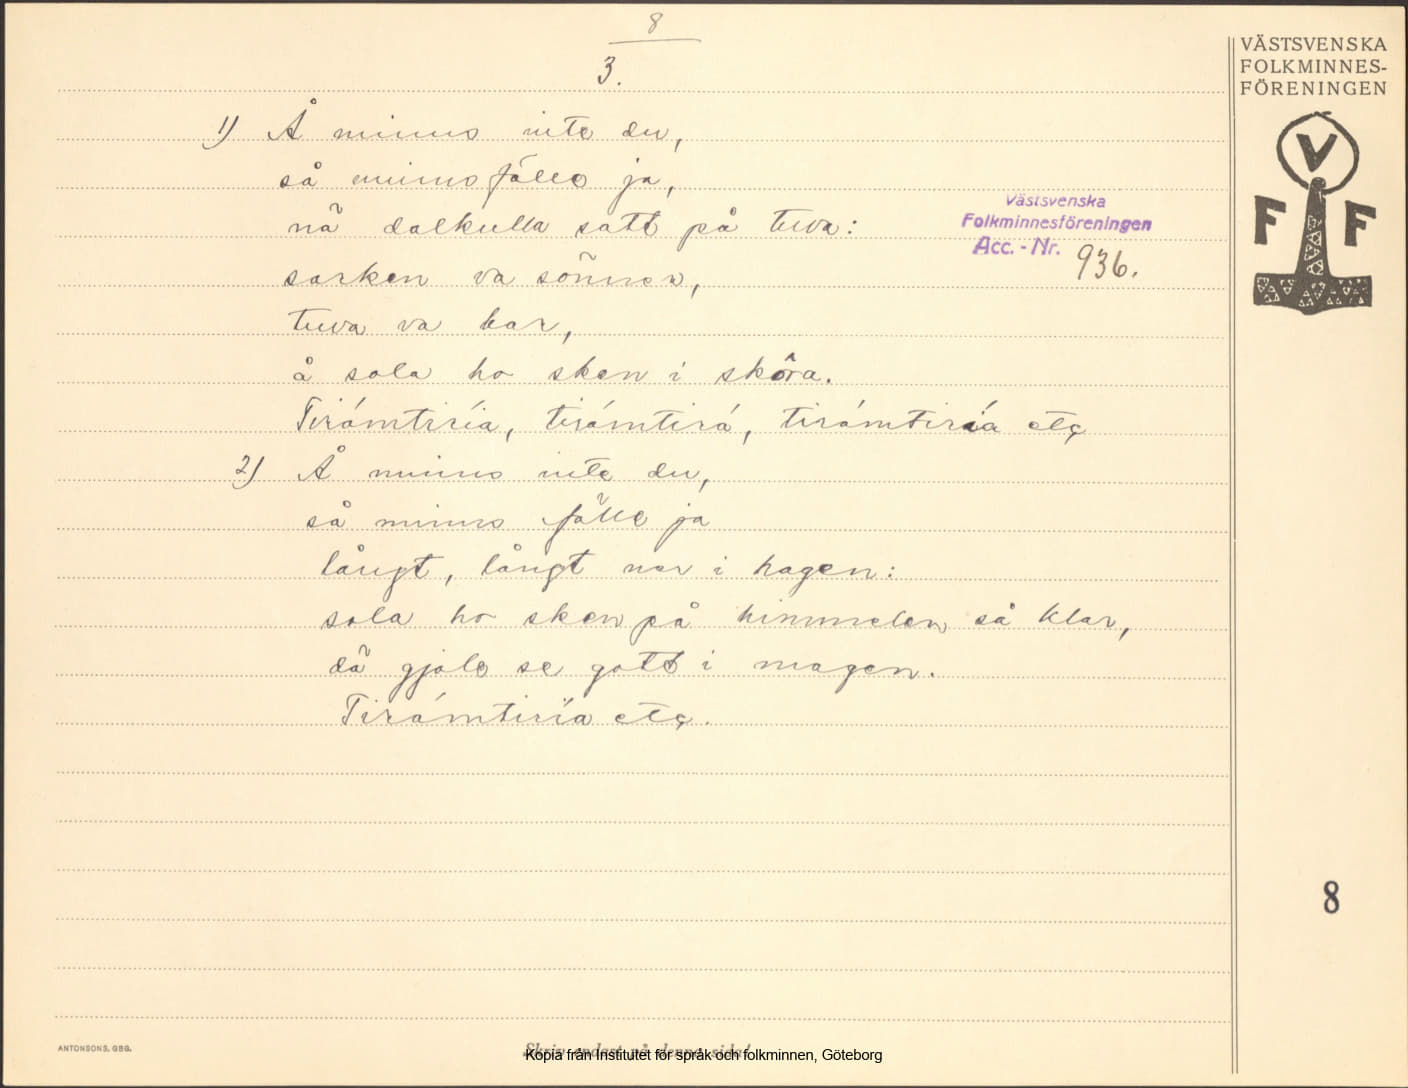 8
3.
VÄSTSVENSKA
FOLKMINNES-
FÖRENINGEN
V
F F
1) Å minns inte du,
så minns fälle ja,
nä dalkulla satt på tuva:
Västsvenska
Folkminnesföreningen
Acc. - Nr. 936.
sarken va sönner,
tuva va bar,
å sola ho sken i skôra.
Tirámtiría, tirámtirá, tirámtiría etc
2) Å minns inte du,
så minns fälle ja
långt, långt ner i hagen:
sola ho sken på himmelen så klar,
dä gjole se gott i magen.
Tirámtiría etc.
8
ANTONSONS, GBG.
Skriv endast på denna sida!
Kopia från Institutet för språk och folkminnen, Göteborg